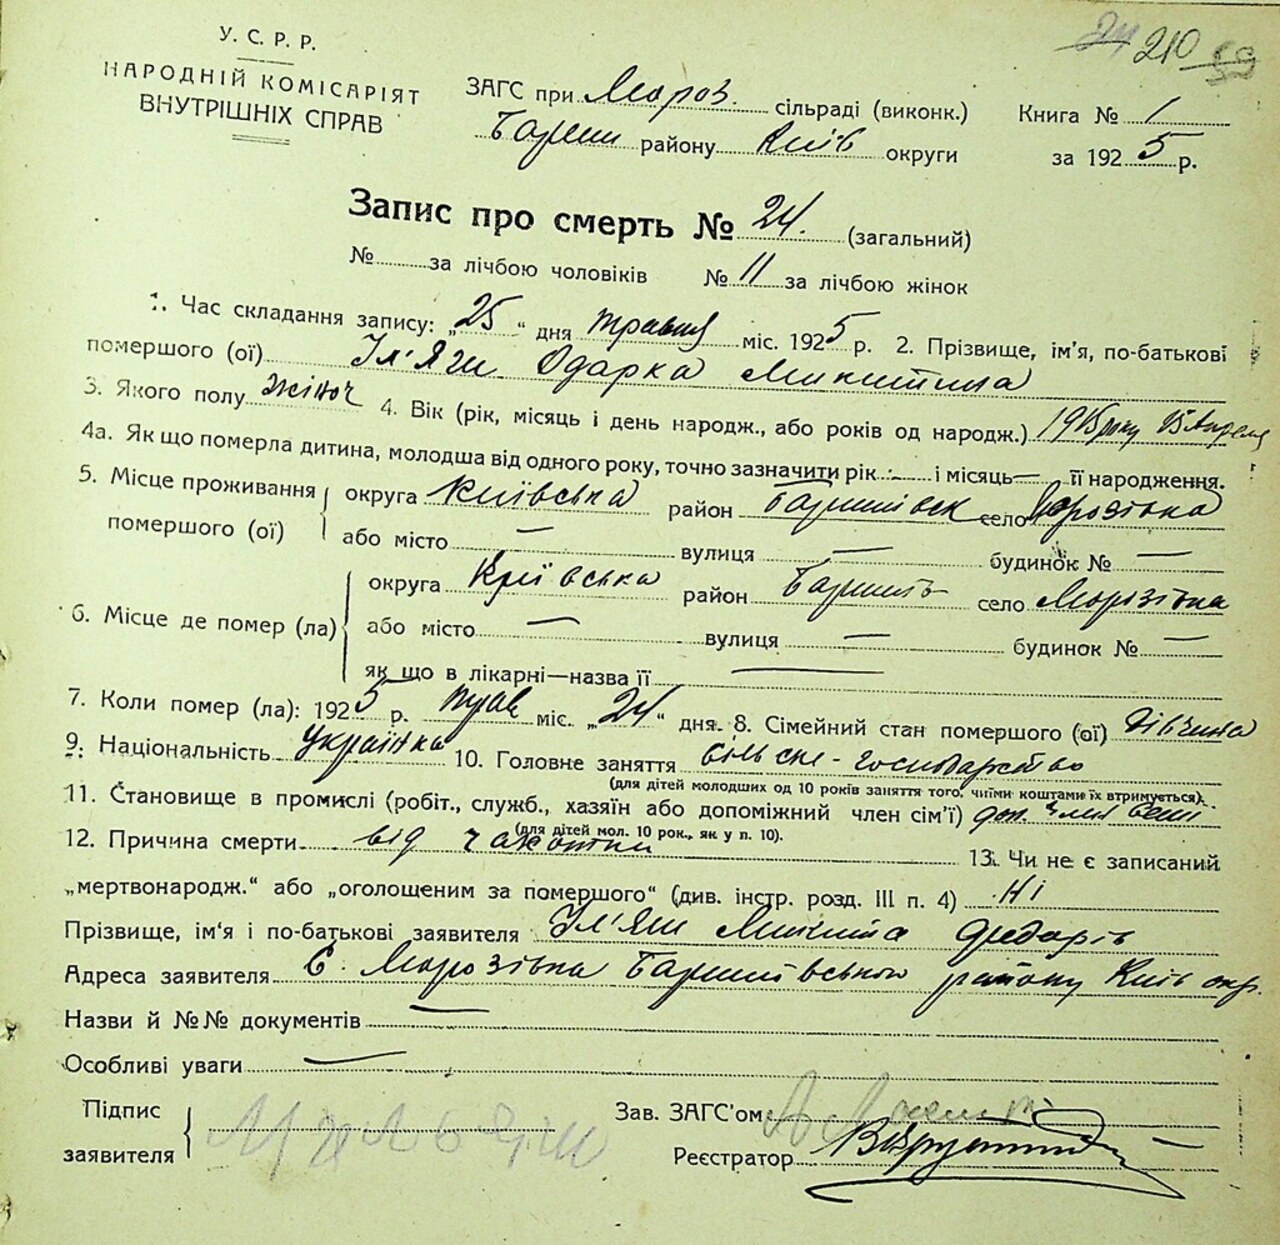 24 210 59
У. С. Р. Р.
НАРОДНІЙ КОМІСАРІЯТ
ВНУТРІШНІХ СПРАВ
ЗАГС при Мороз. сільраді (виконк.)
Бариш району Київ округи
Книга № 1
за 1925 р.
Запис про смерть № 24. (загальний)
№ за лічбою чоловіків № 11 за лічбою жінок
1. Час складання запису: „25“ дня травня міс. 1925 р. 2. Прізвище, ім'я, по-батькові
помершого (ої) Іл'яш Одарка Микитина
3. Якого полу жіноч 4. Вік (рік, місяць і день народж., або років од народж.) 1915 року 15 Апреля
4а. Як що померла дитина, молодша від одного року, точно зазначити рік — і місяць — її народження.
5. Місце проживання помершого (ої) округа Київська район Баришівск село Морозівка
або місто — вулиця — будинок № —
6. Місце де помер (ла) округа Київська район Баришів село Морозівка
або місто — вулиця — будинок № —
як що в лікарні—назва її —
7. Коли помер (ла): 1925 р. трав міс. „24“ дня. 8. Сімейний стан помершого (ої) дівчина
9. Національність українка 10. Головне заняття сільске-господарство
(для дітей молодших од 10 років заняття того, чиїми коштами їх втримується).
11. Становище в промислі (робіт., служб., хазяїн або допоміжний член сім'ї) доп. член семї
(для дітей мол. 10 рок., як у п. 10).
12. Причина смерти від чахотки 13. Чи не є записаний
„мертвонародж.“ або „оголошеним за помершого“ (див. інстр. розд. III п. 4) Ні
Прізвище, ім'я і по-батькові заявителя Іл'яш Микита Федорів
Адреса заявителя С. Морозівка Баришівського району Київ окр.
Назви й №№ документів —
Особливі уваги —
Підпис
заявителя
Зав. ЗАГС'ом
Реєстратор